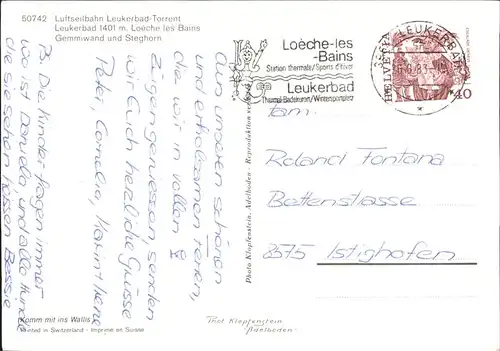 50742 Luftseilbahn Leukerbad-Torrent
Leukerbad 1401 m, Loèche les Bains
Gemmiwand und Steghorn
Aus unseren schönen
und erholsamen Ferien,
die wir in vollen
Zügen geniessen, senden
wir Euch herzliche Grüsse
Peter, Cornelia, Karin + Irene
PS. Die Kinder fragen immer
wo ist Daniela, und alle Hunde
die sie sehen heissen Bessie
Komm mit ins Wallis
Printed in Switzerland - Imprimé en Suisse
Photo Klopfenstein, Adelboden - Reproduktion verboten
Phot Klopfenstein
Adelboden
Loèche-les
-Bains
Station thermale/Sports d'hiver
Leukerbad
Thermal-Badekurort/Wintersportplatz
LEUKERBAD
HELVETIA
40
Fam.
Roland Fontana
Bettenstrasse
8575 Istighofen